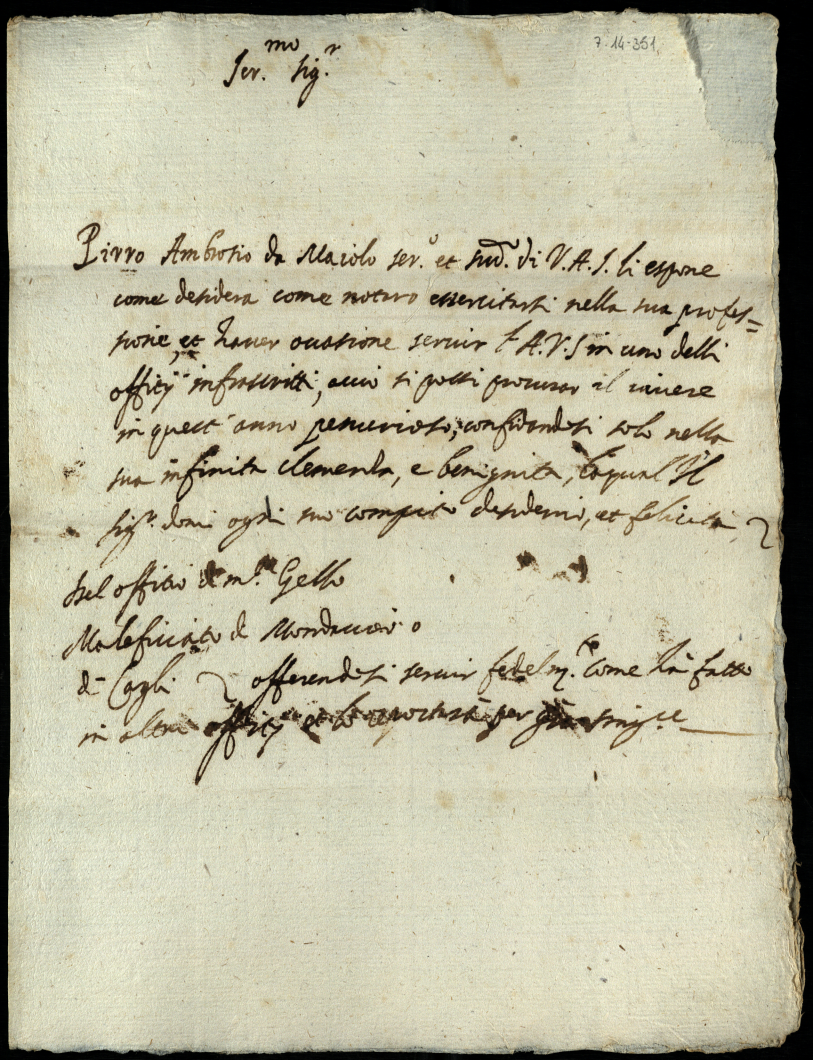 7-14-351,
Ser.mo Sig.r
Pirro Ambrosio da Maiolo ser.o et sud.o di V.A.S. li espone
come desidera come notaro essercitarsi nella sua profes=
sione, et haver occasione servir l'A.V.S in uno delli
offitij infrascritti, acciò si possi procurar il vivere
in quest'anno penurioso, confidandosi solo nella
sua infinita clemenza, e benignità, la qual Il
Sig.r doni ogni suo compito desiderio, et felicità
Nel offitio di m.te Gello
Maleficiato di Mondavio
di Cagli offerendosi servir fedelm.te come hà fatto
in altri offitij et lo reportarà per gratia sing.re